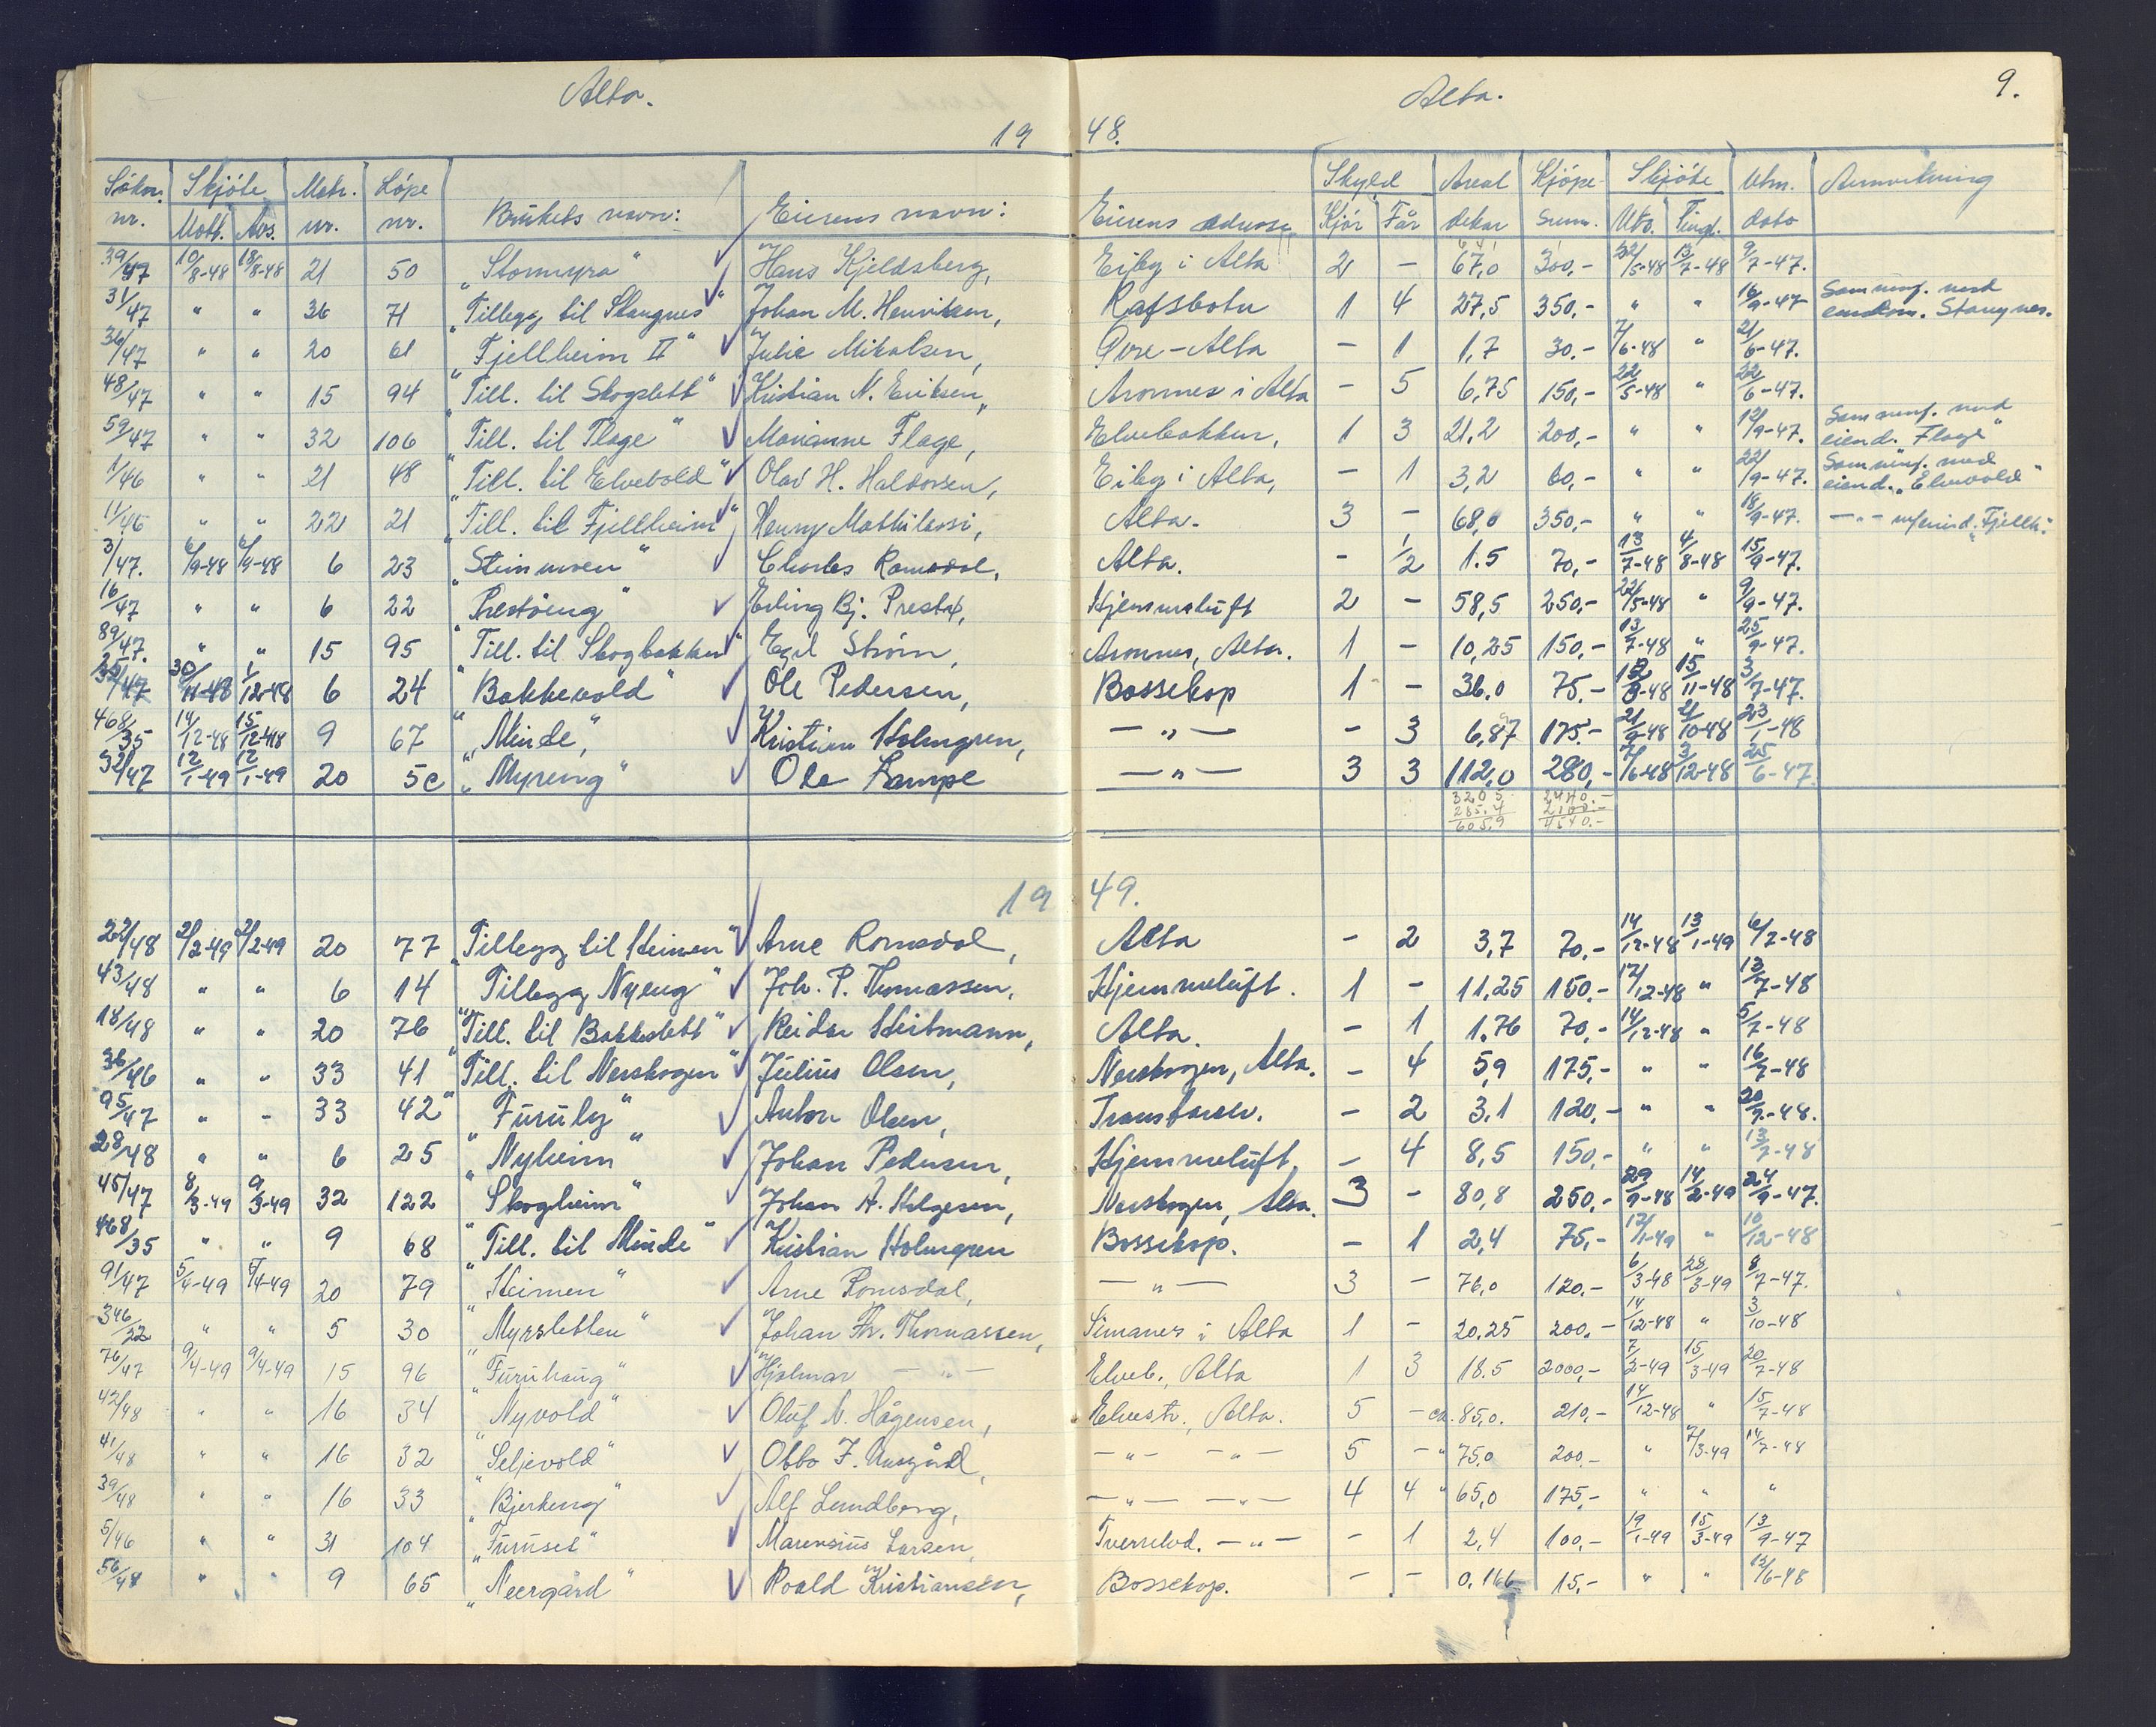 Alta. Alta. 9.
19 48.
Skjöte Matr. Löpe Skyld Areal Kjöpe- Skjöte Utm. Anmerkning
nr. Mott. Avs. nr. nr. Brukets navn: Eierens navn: Eierens adresse Kjör Får dekar sum. Uts. Tingl. dato
39/47 10/8-48 18/8-48 21 50 "Stormyra" Hans Kjeldsberg, Eiby i Alta 2 - 67,0 300,- 13/7-48 9/7-47.
31/47 " " 36 71 "Tillegg til Stangnes" Johan M. Henriksen, Rafsbotn 1 4 27,5 350.- " " 16/9-47 Sammenf. med
eiendom. Stangnes.
36/47 " " 20 61 "Fjellheim II" Julie Mikalsen, Övre-Alta - 1 1,7 30.- 7/6-48 " 21/6-47.
48/47 " " 15 94 "Till. til Skogslett" Kristian N. Eriksen, Aronnes i Alta - 5 6,75 150,- 22/5-48 " 22/6-47.
59/47 " " 32 106 "Till. til Flage" Marianne Flage, Elvebakken, 1 3 21,2 200,- " " 12/9-47. Sammenf. med
eiend. Flage"
1/46 " " 21 48 "Till. til Elvevold" Olav H. Haldorsen, Eiby i Alta, - 1 3,2 60,- " " 22/9-47. Sammenf. med
eiend. "Elvevold"
11/46 " " 22 21 "Till. til Fjellheim" Henry Mathilassi, Alta. 3 - 68,0 350,- " " 18/9-47. -"- m/eiend. "Fjellh."
3/47. 6/9-48 6/9-48 6 23 "Steinmoen" Charles Romsdal, Alta. - 1/2 1.5 70,- 13/7-48 4/8-48 15/9-47.
16/47 " " 6 22 "Prestöeng" Erling Bj. Prestö, Hjemmeluft 2 - 58,5 250,- 22/5-48 " 9/9-47.
89/47. " " 15 95 "Till. til Skogbakken" Egil Ström, Aronnes, Alta. 1 - 10,25 150,- 13/7-48 " 25/9-47.
35/47 30/11-48 1/12-48 6 24 "Bakkevold" Ole Pedersen, Bossekop 1 - 36.0 75.- 15/11-48 3/7-47.
468/35 14/12-48 15/12-48 9 67 "Minde", Kristian Holmgren, -"- - 3 6,87 175.- 21/9-48 2/10-48 23/1-48
32/47 12/1-49 12/1-49 20 50 "Myreng" Ole Lampe -"- 3 3 112,0 280,- 7/6-48 3/12-48 25/6-47.
320 5 2440.-
285.4 2100.-
605,9 4540.-
19 49.
22/48 2/2-49 2/2-49 20 77 "Tillegg til Heimen" Arne Romsdal, Alta - 2 3,7 70,- 14/12-48 13/1-49 6/7-48
43/48 " " 6 14 Tillegg Nyeng" Joh. P. Thomassen, Hjemmeluft. 1 - 11,25 150.- 17/12-48 " 13/7-48
18/48 " " 20 76 "Till. til Bakkeslett" Reidar Heitmann, Alta. - 1 1.76 70,- 14/12-48 " 5/7-48
36/46 " " 33 41 "Till. til Nerskogen" Julius Olsen, Nerskogen, Alta. - 4 5,9 175,- " " 16/7-48
95/47 " - 33 42 "Furuly" Anton Olsen, Transfarelv. - 2 3.1 120,- " " 20/7-48.
28/48 " " 6 25 "Nyheim" Johan Pedersen, Hjemmeluft. - 4 8,5 150,- " " 13/7-48
45/47 8/3-49 9/3-49 32 122 "Skogheim" Johan A. Helgesen, Nerskogen, Alta. 3 - 80,8 250,- 29/9-48 14/2-49 24/9-47.
468/35 " " 9 68 "Till. til Minde" Kristian Holmgren Bossekop. - 1 2,4 75,- 12/1-49 " 10/12-48
91/47 5/4-49 5/4-49 20 79 "Heimen" Arne Romsdal, -"- 3 - 76,0 120,- 6/3-48 28/3-49 8/7-47.
346/22 " " 5 30 "Myrsletten" Johan Th. Thomassen, Simanes i Alta 1 - 20,25 200,- 14/12-48 " 3/10-48
76/47 9/4-49 9/4-49 15 96 "Furuhaug" Hjalmar -"- Elveb., Alta 1 3 18.5 2000,- 7/2-49 15/3-49 20/7-48
42/48 " " 16 34 "Nyvold" Oluf N. Hågensen, Elvestr., Alta. 5 - ca. 85,0. 210,- 14/12-48 " 15/7-48
41/48 " " 16 32 "Seljevold" Otto F. Aasgård, -"- -"- 5 - " 75,0 200.- " 7/3-49 14/7-48
39/48 " " 16 33 "Bjerkeng" Alf Lundberg, -"- -"- 4 4 " 65,0 175,- " " "
5/46 " " 31 104 "Furuset" Marensius Larsen, Tverrelvd. -"- - 1 2,4 100,- 19/1-49 15/3-49 13/9-47
56/48 " " 9 65 "Neergård" Roald Kristiansen, Bossekop. - - 0.166 15,- " " 12/6-48